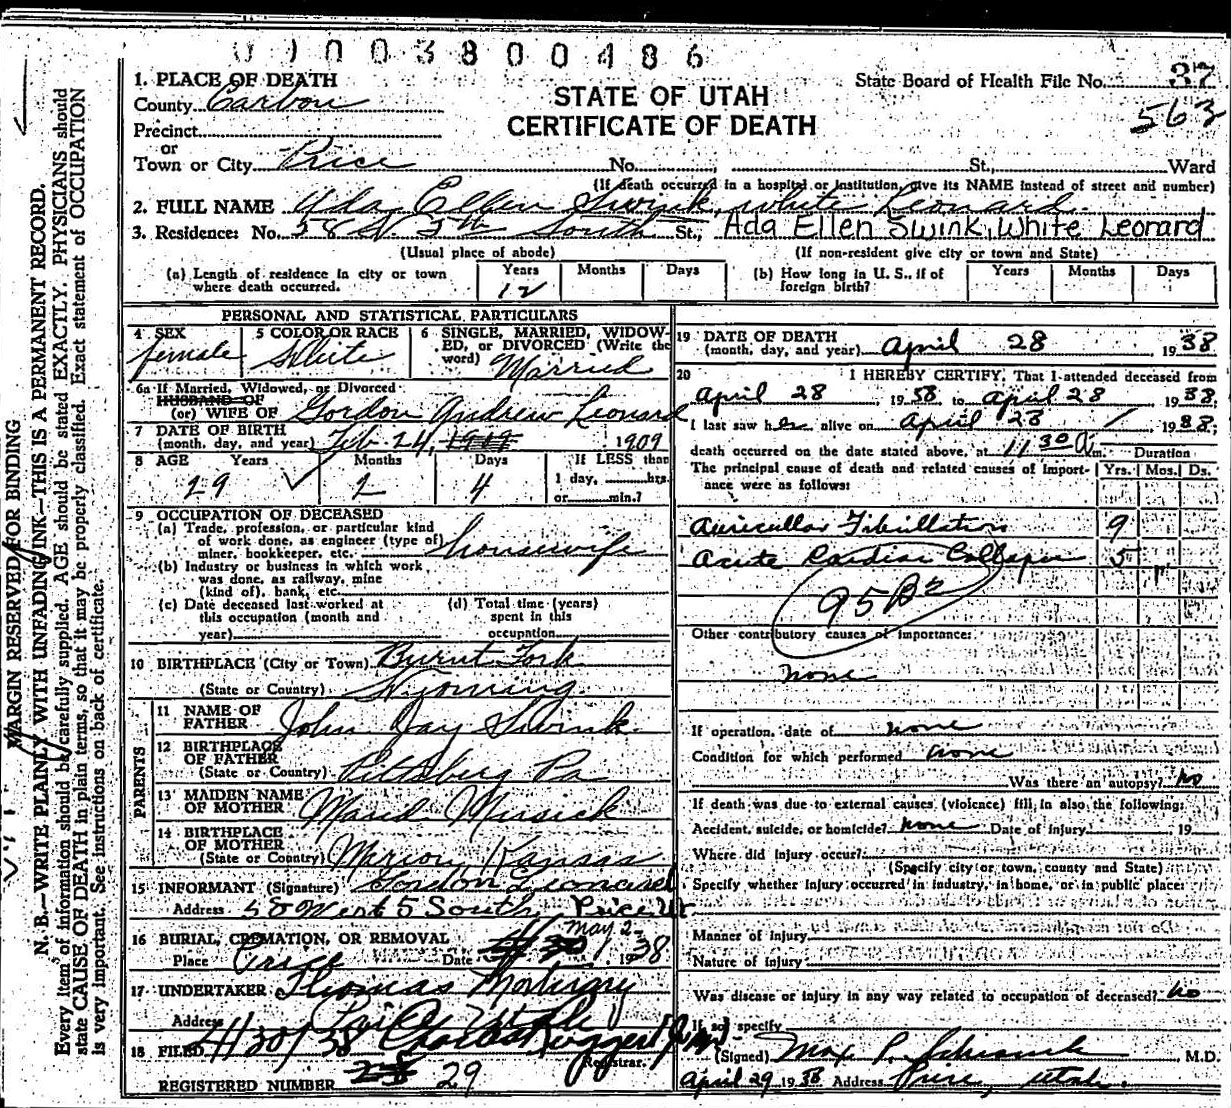 01003800486
1. PLACE OF DEATH
State Board of Health File No. 37
County Carbon
STATE OF UTAH
563
Precinct
CERTIFICATE OF DEATH
or
Town or City Price No. St., Ward
(If death occurred in a hospital or institution, give its NAME instead of street and number)
2. FULL NAME Ada Ellen Swink, White Leonard
3. Residence: No. 58 W. 5th South St., Ada Ellen Swink, White Leorard
(Usual place of abode) (If non-resident give city or town and State)
(a) Length of residence in city or town where death occurred. Years 12 Months Days
(b) How long in U. S., if of foreign birth? Years Months Days
PERSONAL AND STATISTICAL PARTICULARS
4 SEX female
5 COLOR OR RACE White
6 SINGLE, MARRIED, WIDOWED, or DIVORCED (Write the word) Married
6a If Married, Widowed, or Divorced
HUSBAND OF
(or) WIFE OF Gordon Andrew Leonard
7 DATE OF BIRTH
(month, day, and year) Feb. 24, 1909
8 AGE Years 29 Months 2 Days 4
If LESS than
1 day, hrs.
or min.?
9 OCCUPATION OF DECEASED
(a) Trade, profession, or particular kind
of work done, as engineer (type of)
miner, bookkeeper, etc. housewife
(b) Industry or business in which work
was done, as railway, mine
(kind of), bank, etc.
(c) Date deceased last worked at
this occupation (month and
year)
(d) Total time (years)
spent in this
occupation
10 BIRTHPLACE (City or Town) Burnt Fork
(State or Country) Wyoming
PARENTS
11 NAME OF
FATHER John Day Swink
12 BIRTHPLACE
OF FATHER
(State or Country) Pittsberg Pa
13 MAIDEN NAME
OF MOTHER
14 BIRTHPLACE
OF MOTHER
(State or Country) Marion, Kansas
15 INFORMANT (Signature) Gordon Leonard
Address 58 West 5 South, Price, Ut
16 BURIAL, CREMATION, OR REMOVAL
Place Price Date May 2 1938
17 UNDERTAKER Thomas Mortuary
Address Price Utah
18 FILED 4/30/38
Registrar.
REGISTERED NUMBER 29
19 DATE OF DEATH
(month, day, and year) April 28 1938
20 I HEREBY CERTIFY, That I attended deceased from
April 28, 1938, to April 28 1938,
I last saw her alive on April 28 1938,
death occurred on the date stated above, at 11:30 A m.
Duration
The principal cause of death and related causes of importance were as follows:
Yrs. Mos. Ds.
Auricullar Fibrillation 9
Acute Cardiac Collapse 5
95B2
Other contributory causes of importance:
none
If operation, date of none
Condition for which performed none
Was there an autopsy? no
If death was due to external causes (violence) fill in also the following:
Accident, suicide, or homicide? none Date of injury 19
Where did injury occur?
(Specify city or town, county and State)
Specify whether injury occurred in industry, in home, or in public place:
Manner of injury
Nature of injury
Was disease or injury in any way related to occupation of deceased? no
If so, specify
(Signed) Max P. M.D.
April 29 1938 Address Price, Utah.
MARGIN RESERVED FOR BINDING
N. B.—WRITE PLAINLY WITH UNFADING INK—THIS IS A PERMANENT RECORD.
Every item of information should be carefully supplied. AGE should be stated EXACTLY. PHYSICIANS should
state CAUSE OF DEATH in plain terms, so that it may be properly classified. Exact statement of OCCUPATION
is very important. See instructions on back of certificate.